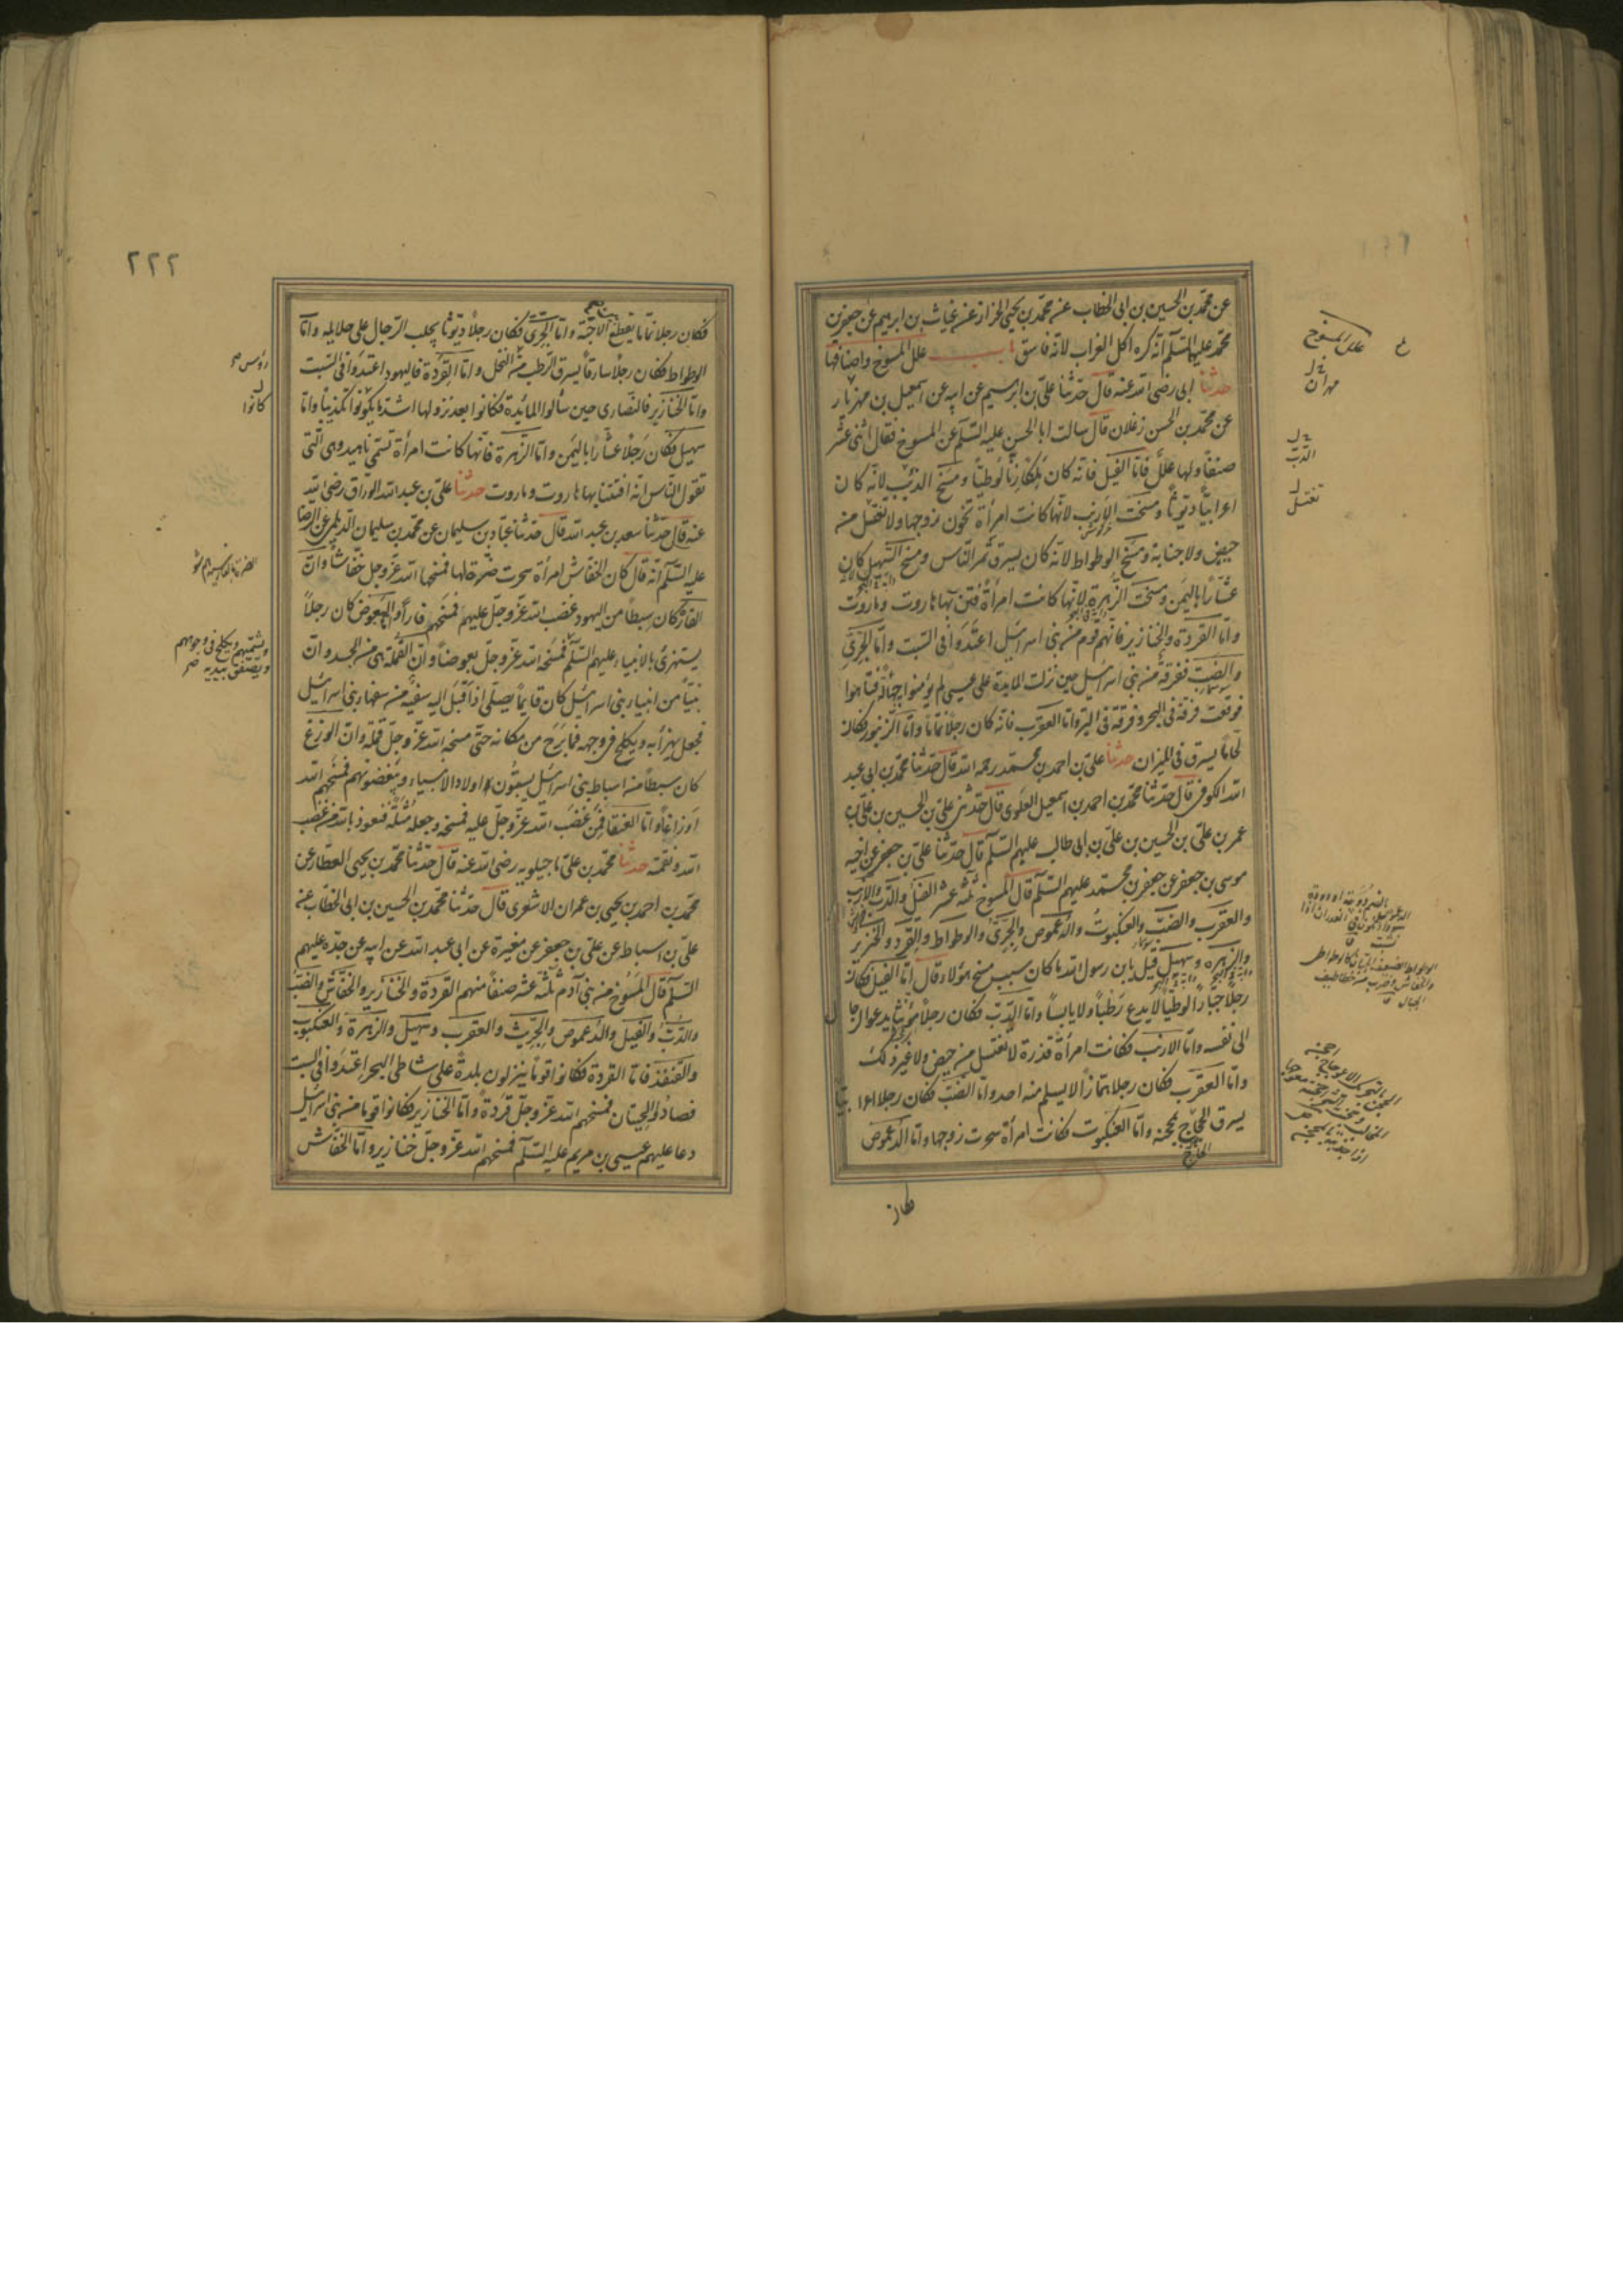 عن محمد بن الحسين بن ابى الخطاب عن محمد بن يحيى الخزاز عن غياث بن ابرهيم عن جعفر بن
محمد عليهما السلم انه كره اكل الغراب لانه فاسق باب علل المسوخ واصنافها
حدثنا ابى رضى الله عنه قال حدثنا على بن ابرهيم عن ابيه عن اسمعيل بن مهزيار
عن محمد بن الحسن زعلان قال سالت ابا الحسن عليه السلم عن المسوخ فقال اثنى عشر
صنفا ولها علل فاما الفيل فانه كان ملكا زناء لوطيا و مسخ الدب لانه كان
اعرابيا ديوثا و مسخت الارنب لانها كانت امرأة تخون زوجها ولا تغتسل من
حيض ولا جنابة و مسخ الوطواط لانه كان يسرق تمر الناس و مسخ السهيل كان
عشارا باليمن و مسخت الزهرة لانها كانت امرأة فتن بها هاروت و ماروت
واما القردة والخنازير فانهم قوم من بنى اسرائيل اعتدوا فى السبت واما الجرى
والضب ففرقة من بنى اسرائيل حين نزلت المايدة على عيسى لم يؤمنوا به فتاهوا
فوقعت فرقة فى البحر و فرقة فى البر واما العقرب فانه كان رجلا نماما واما الزنبور فكان
لحاما يسرق فى الميزان حدثنا على بن احمد بن محمد رحمه الله قال حدثنا محمد بن ابى عبد
الله الكوفى قال حدثنا محمد بن احمد بن اسمعيل العلوى قال حدثنى على بن الحسين بن على بن
عمر بن على بن الحسين بن على بن ابى طالب عليهم السلم قال حدثنا على بن جعفر عن اخيه
موسى بن جعفر عن جعفر بن محمد عليهم السلم قال المسوخ ثلثه عشر الفيل والدب والارنب
والعقرب والضب والعنكبوت والدعموص والجرى والوطواط والقرد والخنزير
والزهره و سهيل قيل يا بن رسول الله ما كان سبب مسخ هؤلاء قال اما الفيل فكان
رجلا جبارا لوطيا لا يدع رطبا ولا يابسا واما الدب فكان رجلا مؤنثا يدعو الرجال
الى نفسه واما الارنب فكانت امرأة قذرة لا تغتسل من حيض ولا غير ذلك
واما العقرب فكان رجلا همازا لا يسلم منه احد واما الضب فكان رجلا اعرابيا
يسرق الحاج بمحجنه واما العنكبوت فكانت امرأة سحرت زوجها واما الدعموص
فكان
علل المسوخ
مهران
الدب
تغتسل
٢٢٢
فكان رجلا نماما يقطع بين الاحبة واما الجرى فكان رجلا ديوثا يجلب الرجال على حلايله واما
الوطواط فكان رجلا سارقا يسرق الرطب من النخل واما القردة فاليهود اعتدوا فى السبت
واما الخنازير فالنصارى حين سألوا المائدة فكانوا بعد نزولها اشد ما يكونوا تكذيبا واما
سهيل فكان رجلا عشارا باليمن واما الزهرة فانها كانت امرأة تسمى ناهيد وهى التى
تقول الناس انه افتتن بها هاروت و ماروت حدثنا على بن عبد الله الوراق رضى الله
عنه قال حدثنا سعد بن عبد الله قال حدثنا عباد بن سليمان عن محمد بن سليمان الديلمى عن الرضا
عليه السلم انه قال كان الخفاش امرأة سحرت ضرة لها فمسخها الله عز وجل خفاشا وان
الفار كان سبطا من اليهود غضب الله عز وجل عليهم فمسخهم فارا وان البعوض كان رجلا
يستهزئ بالانبياء عليهم السلم فمسخه الله عز وجل بعوضا وان القملة هى من الجسد وان
نبيا من انبياء بنى اسرائيل كان قايما يصلى اذ اقبل اليه سفيه من سفهاء بنى اسرائيل
فجعل يهزأ به و يكلح فى وجهه فما برح من مكانه حتى مسخه الله عز وجل قملة وان الوزغ
كان سبطا من اسباط بنى اسرائيل يسبون اولاد الانبياء و يبغضونهم فمسخهم الله
اوزاغا واما العنقا فمن غضب الله عز وجل عليه فمسخه وجعله مثلة فنعوذ بالله من غضب
الله و نقمته حدثنا محمد بن على ماجيلويه رضى الله عنه قال حدثنا محمد بن يحيى العطار عن
محمد بن احمد بن يحيى بن عمران الاشعرى قال حدثنا محمد بن الحسين بن ابى الخطاب عن
على بن اسباط عن على بن جعفر عن مغيرة عن ابى عبد الله عن ابيه عن جده عليهم
السلم قال المسوخ من بنى آدم ثلثة عشر صنفا منهم القردة والخنازير والخفاش والضب
والدب والفيل والدعموص والجريث والعقرب و سهيل والزهرة والعنكبوت
والقنفذ فاما القردة فكانوا قوما ينزلون بلدة على شاطى البحر اعتدوا فى السبت
فصادوا الحيتان فمسخهم الله عز وجل قردة واما الخنازير فكانوا قوما من بنى اسرائيل
دعا عليهم عيسى بن مريم عليه السلم فمسخهم الله عز وجل خنازير واما الخفاش
كانوا
ويشتمهم ويكلح فى وجوههم
ويصفق بيديه